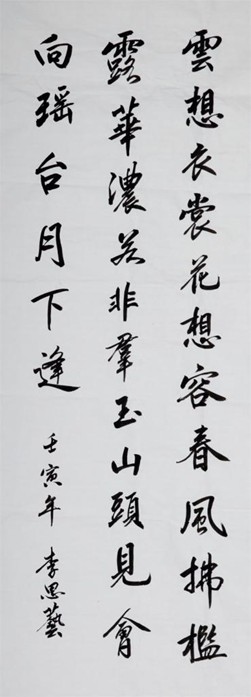 雲想衣裳花想容春風拂檻
露華濃若非羣玉山頭見會
向瑶台月下逢
壬寅年 李思藝